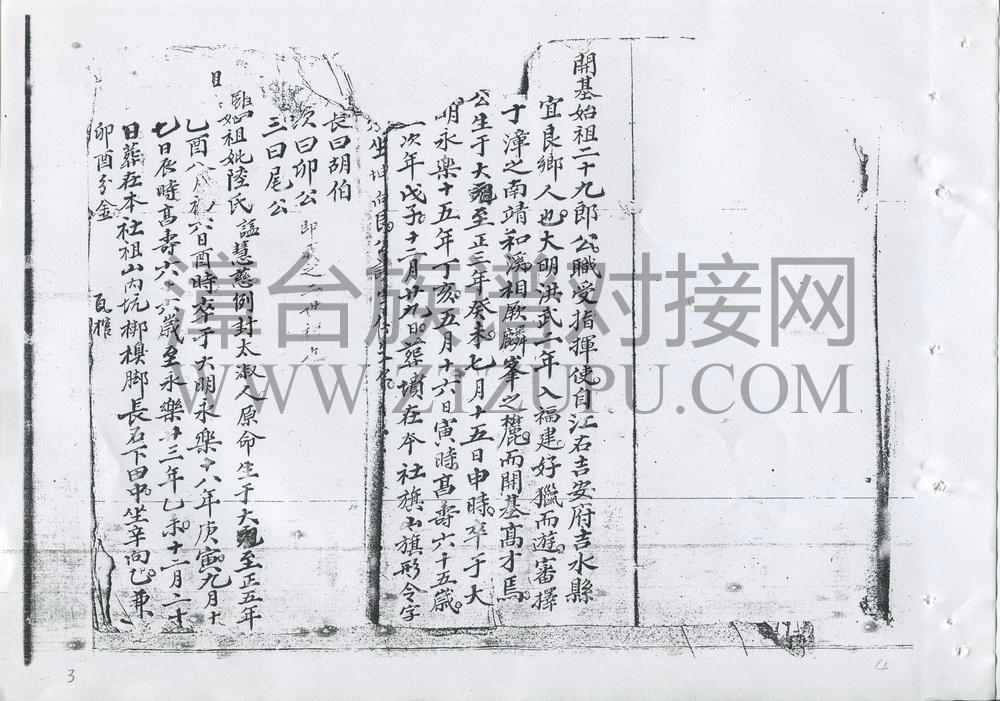 開基始祖二十九郎公職受指揮使自江右吉安府吉水縣
宜良鄉人也大明洪武二年入福建好獵而遊審擇
于漳之南靖和溪相厥麟峯之麓而開基高才焉
公生于大至正三年癸未七月十五日申時卒于大
明永樂十五年丁亥五月十六日寅時髙壽六十五歲
次年戊子十二月廿九日葬墳在本社旗山旗形令字
長曰胡伯
次曰卯公
三曰尾公
妣祖妣陸氏諡慧慈例封太淑人原命生于大至正五年
乙酉八月初六日酉時卒于大明永樂八年庚寅九月十
七日辰時髙壽六六歲至永樂十三年乙未十二月二十
日葬在本社祖山內坑梆模脚長石下田中坐辛向乙兼
卯酉分金
漳台族谱对接网
WWW.ZTZUPU.COM
3
4